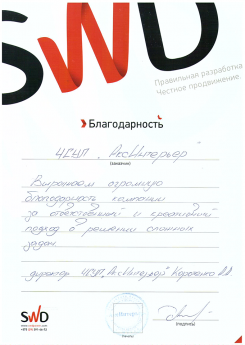 SWD
Правильная разработка
Честное продвижение.
Благодарность
ЧТУП „АксИнтерьер"
(название)
Выражаем огромную
благодарность компании
за ответственный и креативный
подход в решении сложных
задач.
директор ЧТУП „АксИнтерьер"
SWD
(печать)
(подпись)